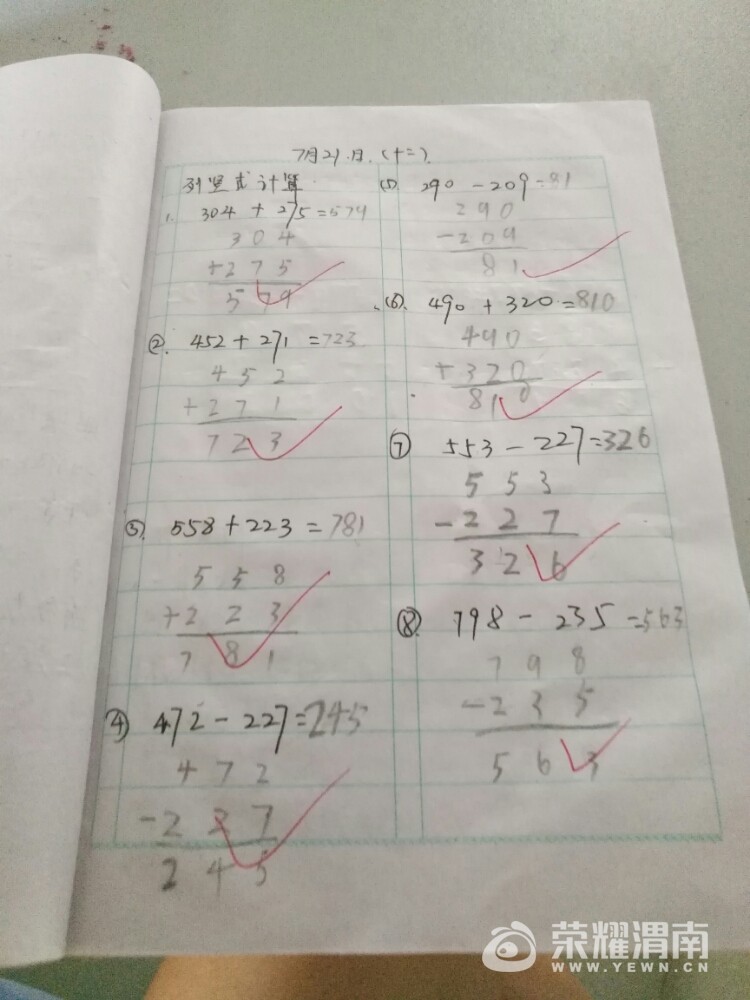 7月21日.(十二).
列竖式计算.
1. 304 + 275=579
304
+275
579
②. 452 + 271 =723
452
+271
723
③. 558+223 =781
558
+223
781
④ 472-227=245
472
-227
245
(5) 290 - 209=81
290
-209
81
(6) 490 + 320=810
490
+320
810
⑦ 553-227=326
553
-227
326
⑧. 798 - 235=563
798
-235
563
荣耀渭南
WWW.YEWN.CN